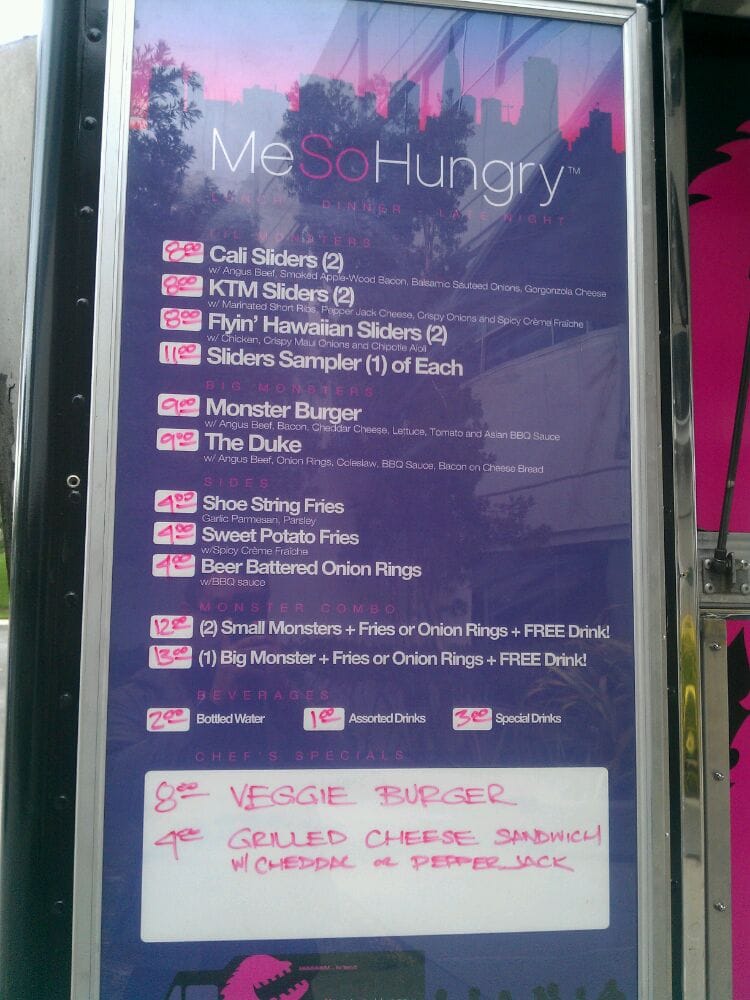 MeSoHungry™
LUNCH DINNER LATE NIGHT
LIL MONSTERS
8.00 Cali Sliders (2)
w/ Angus Beef, Smoked Apple-Wood Bacon, Balsamic Sauteed Onions, Gorgonzola Cheese
8.00 KTM Sliders (2)
w/ Marinated Short Ribs, Pepper Jack Cheese, Crispy Onions and Spicy Crème Fraîche
8.00 Flyin' Hawaiian Sliders (2)
w/ Chicken, Crispy Maui Onions and Chipotle Aioli
11.00 Sliders Sampler (1) of Each
BIG MONSTERS
9.00 Monster Burger
w/ Angus Beef, Bacon, Cheddar Cheese, Lettuce, Tomato and Asian BBQ Sauce
9.00 The Duke
w/ Angus Beef, Onion Rings, Coleslaw, BBQ Sauce, Bacon on Cheese Bread
SIDES
4.00 Shoe String Fries
Garlic Parmesan, Parsley
4.00 Sweet Potato Fries
w/Spicy Crème Fraîche
4.00 Beer Battered Onion Rings
w/BBQ sauce
MONSTER COMBO
12.00 (2) Small Monsters + Fries or Onion Rings + FREE Drink!
13.00 (1) Big Monster + Fries or Onion Rings + FREE Drink!
BEVERAGES
2.00 Bottled Water 1.00 Assorted Drinks 3.00 Special Drinks
CHEF'S SPECIALS
8.00 VEGGIE BURGER
4.00 GRILLED CHEESE SANDWICH
W/ CHEDDAR OR PEPPER JACK